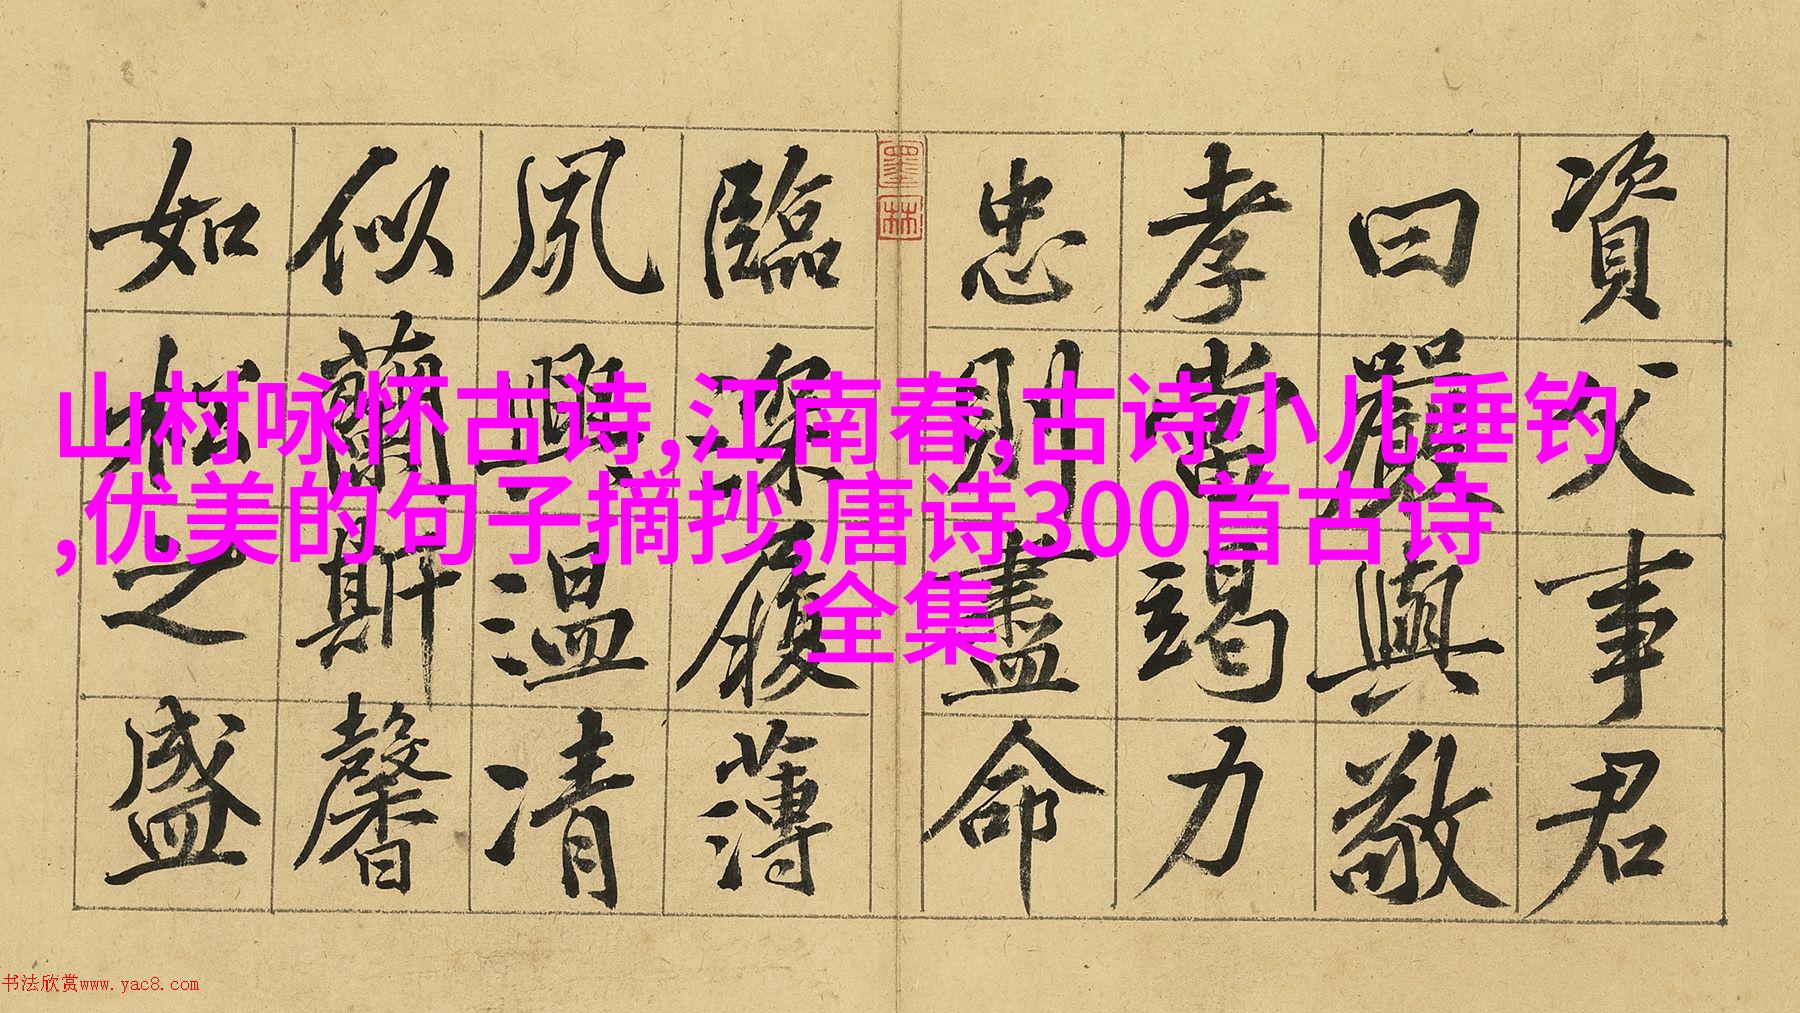 資父事君
曰嚴與敬
孝當竭力
忠則盡命
墨林
臨深履薄
夙興溫凊
似蘭斯馨
如松之盛
山村咏怀古诗,江南春,古诗小儿垂钓
,优美的句子摘抄,唐诗300首古诗
全集
书法欣赏www.yac8.com